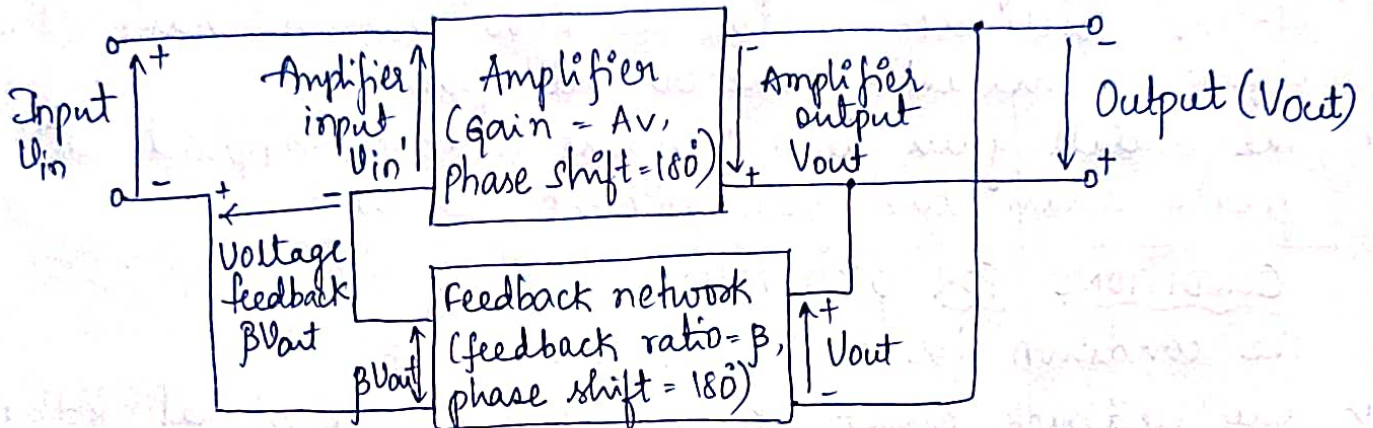 Input
Vin
+
-
Amplifier
input,
Vin'
Amplifier
(Gain = Av,
phase shift=180°)
-
+
Amplifier
output
Vout
-
Output (Vout)
+
+
-
Voltage
feedback
βVout
βVout
Feedback network
(feedback ratio=β,
phase shift = 180°)
+
Vout
-